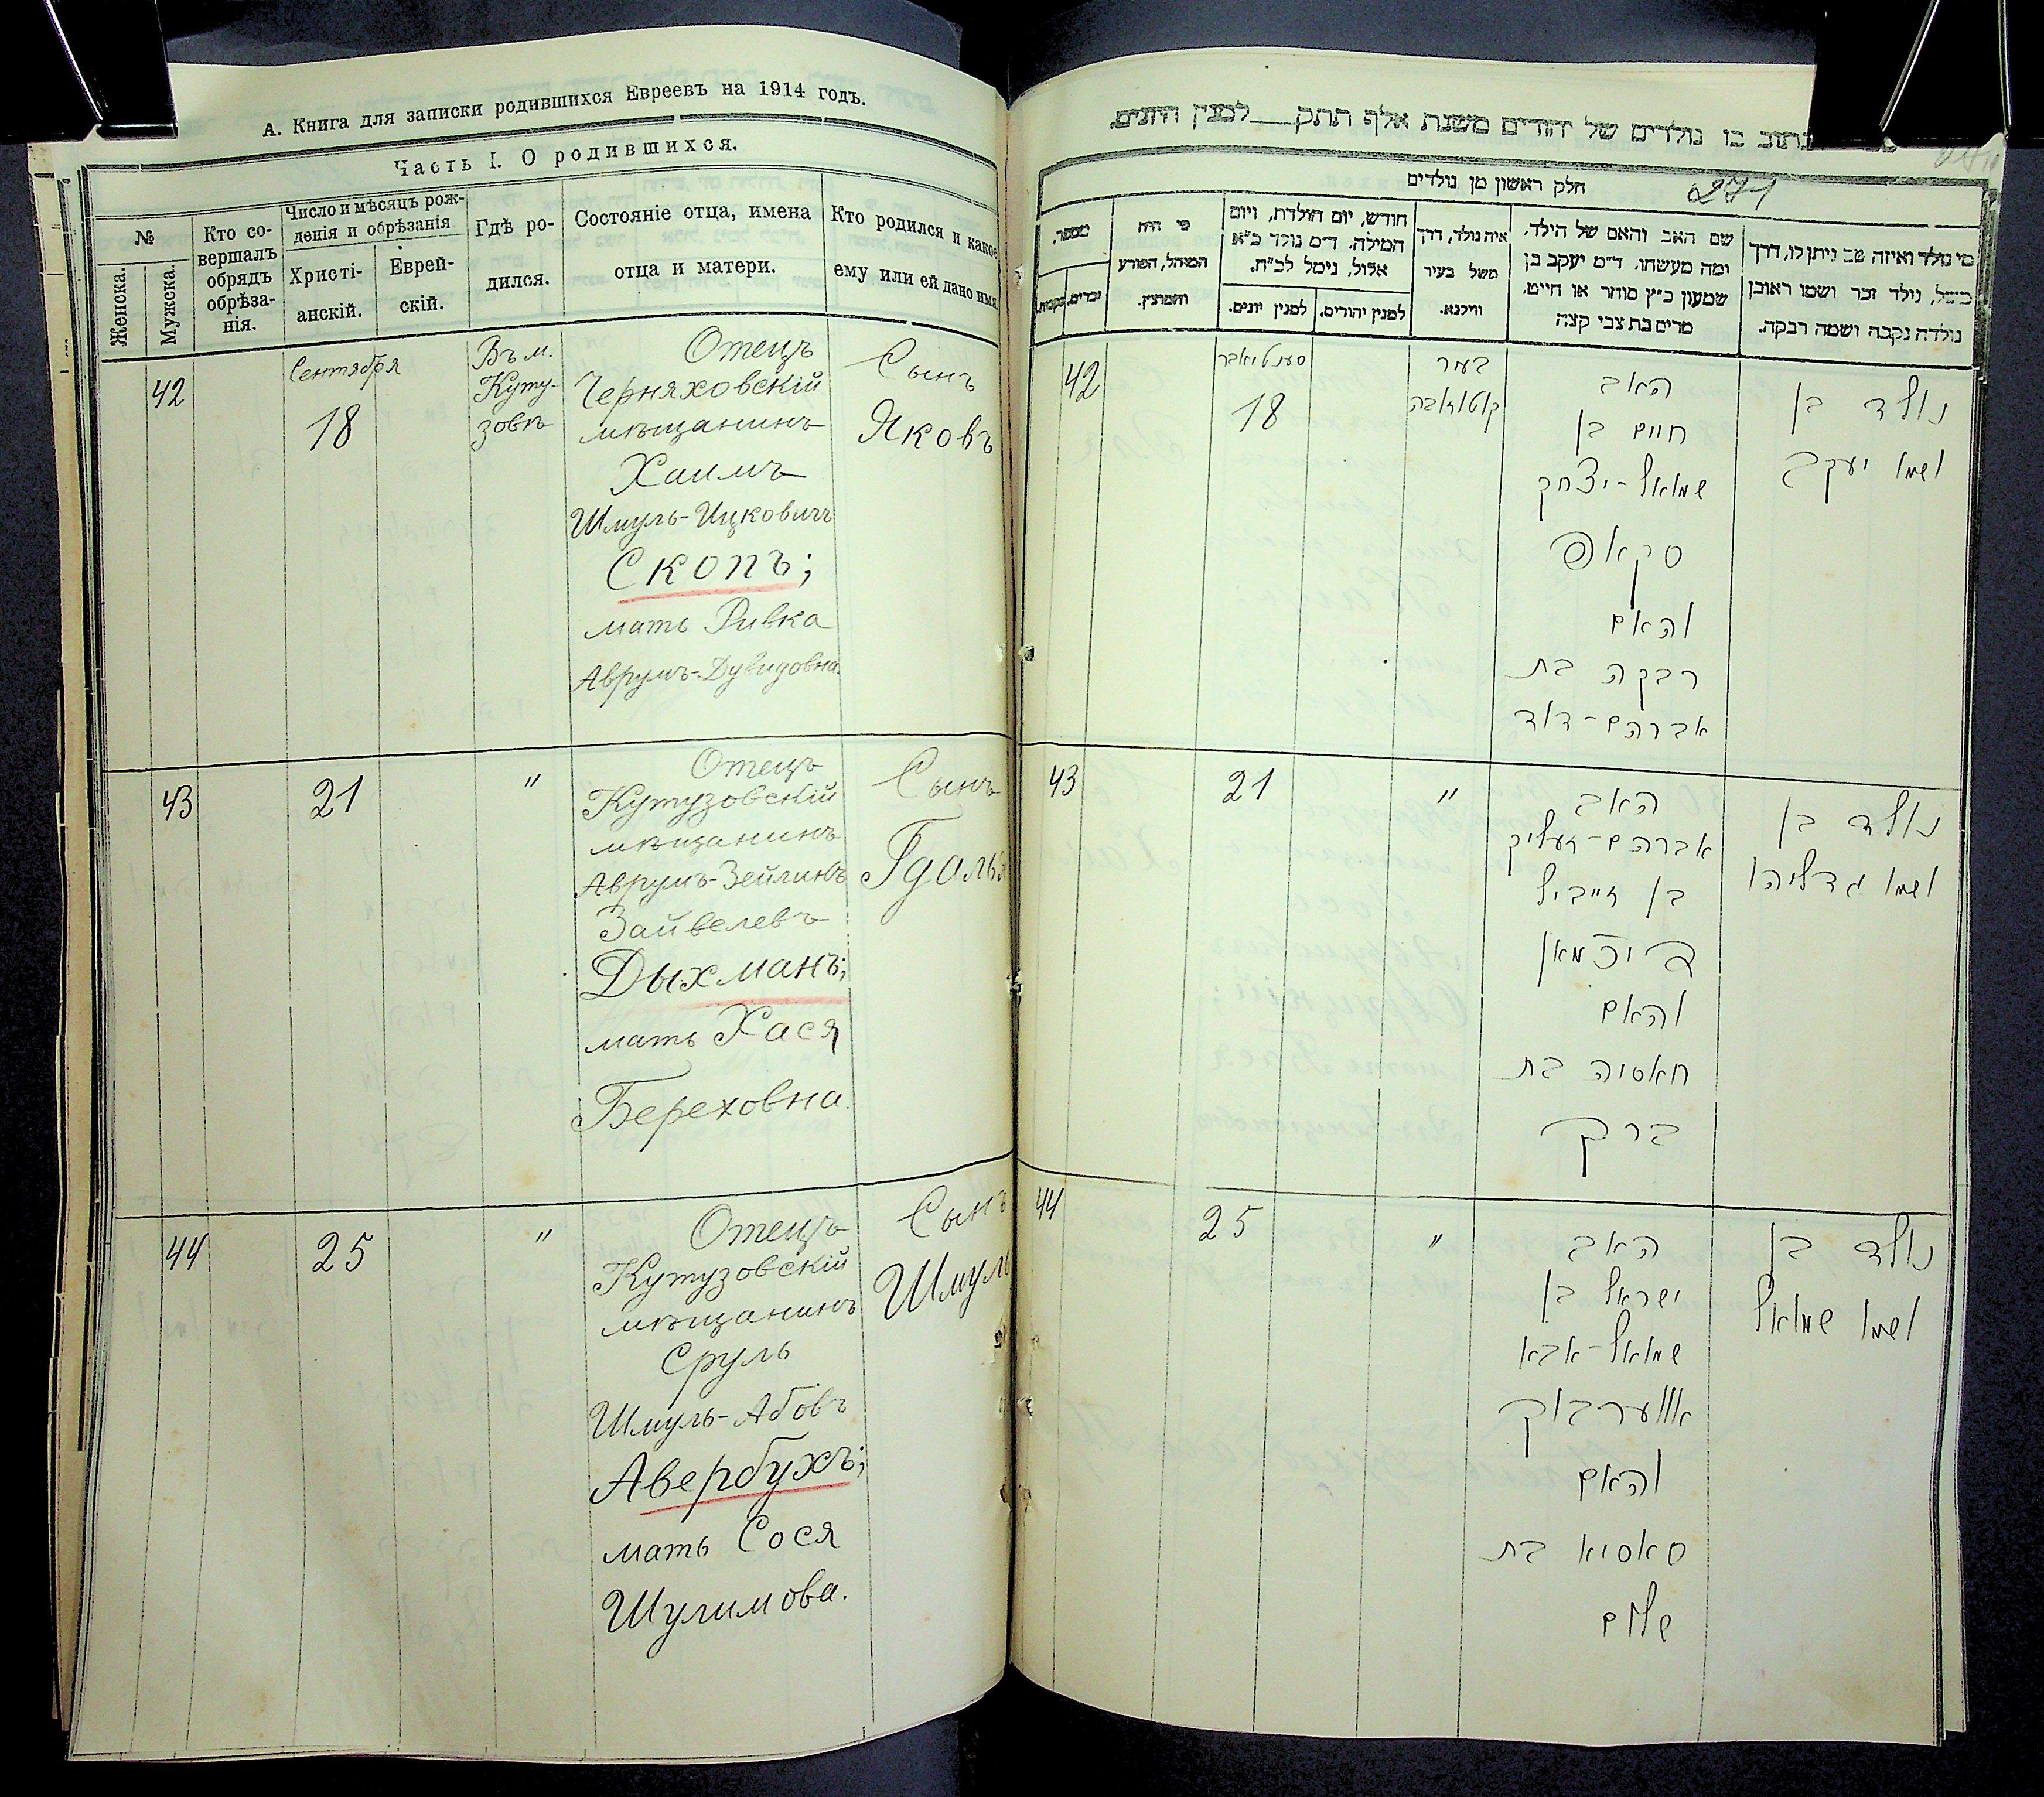 А. Книга для записки родившихся Евреевъ на 1914 годъ.
Часть I. О родившихся.
№
Женска.
Мужска.
Кто со-
вершалъ
обрядъ
обрѣза-
нія.
Число и мѣсяцъ рож-
денія и обрѣзанія
Христі-
анскій.
Еврей-
скій.
Гдѣ ро-
дился.
Состояніе отца, имена
отца и матери.
Кто родился и какое
ему или ей дано имя.
42
Сентября
18
Въ м.
Куту-
зовкѣ
Отецъ
Черняховскій
мѣщанинъ
Хаимъ
Шмуль-Ицковичъ
Скопъ;
мать Ривка
Аврумъ-Дувидовна
Сынъ
Яковъ
43
21
"
Отецъ
Кутузовскій
мѣщанинъ
Аврумъ-Зейликъ
Зайвелевъ
Дыхманъ;
мать Хася
Береховна.
Сынъ
Гдалья
44
25
"
Отецъ
Кутузовскій
мѣщанинъ
Сруль
Шмуль-Абовъ
Авербухъ;
мать Сося
Шулимова.
Сынъ
Шмуль
בו נולדים של יהודים משנת אלף תתק___למנין היונים.
271
חלק ראשון מן נולדים
מי נולד ואיזה שם ניתן לו, דרך
משל, נולד זכר ושמו ראובן
נולדה נקבה ושמה רבקה.
שם האב והאם של הילד,
ומה מעשהו. ד"מ יעקב בן
שמעון כ"ץ סוחר או חייט,
מרים בת צבי קצה
איה נולד, דרך
משל בעיר
ווילנא.
חודש, יום הולדת, ויום
המילה. ד"מ נולד כ"א
אלול, נימל לכ"ח.
למנין יהודים.
למנין יונים.
מי היה
המוהל, הפורע
והמוצץ.
מספר.
זכרים.
נקבות.
42
סענטיאבר
18
בעיר
קוטוזובה
האב
חיים בן
שמואל-יצחק
סקאפ
והאם
רבקה בת
אברהם-דוד
נולד בן
ושמו יעקב
43
21
"
האב
אברהם-זעליק
בן זייביל
דיכמאן
והאם
חאסיה בת
ברך
נולד בן
ושמו גדליהו
44
25
"
האב
ישראל בן
שמואל-אבא
אווערבוך
והאם
סאסיא בת
שלום
נולד בן
ושמו שמואל